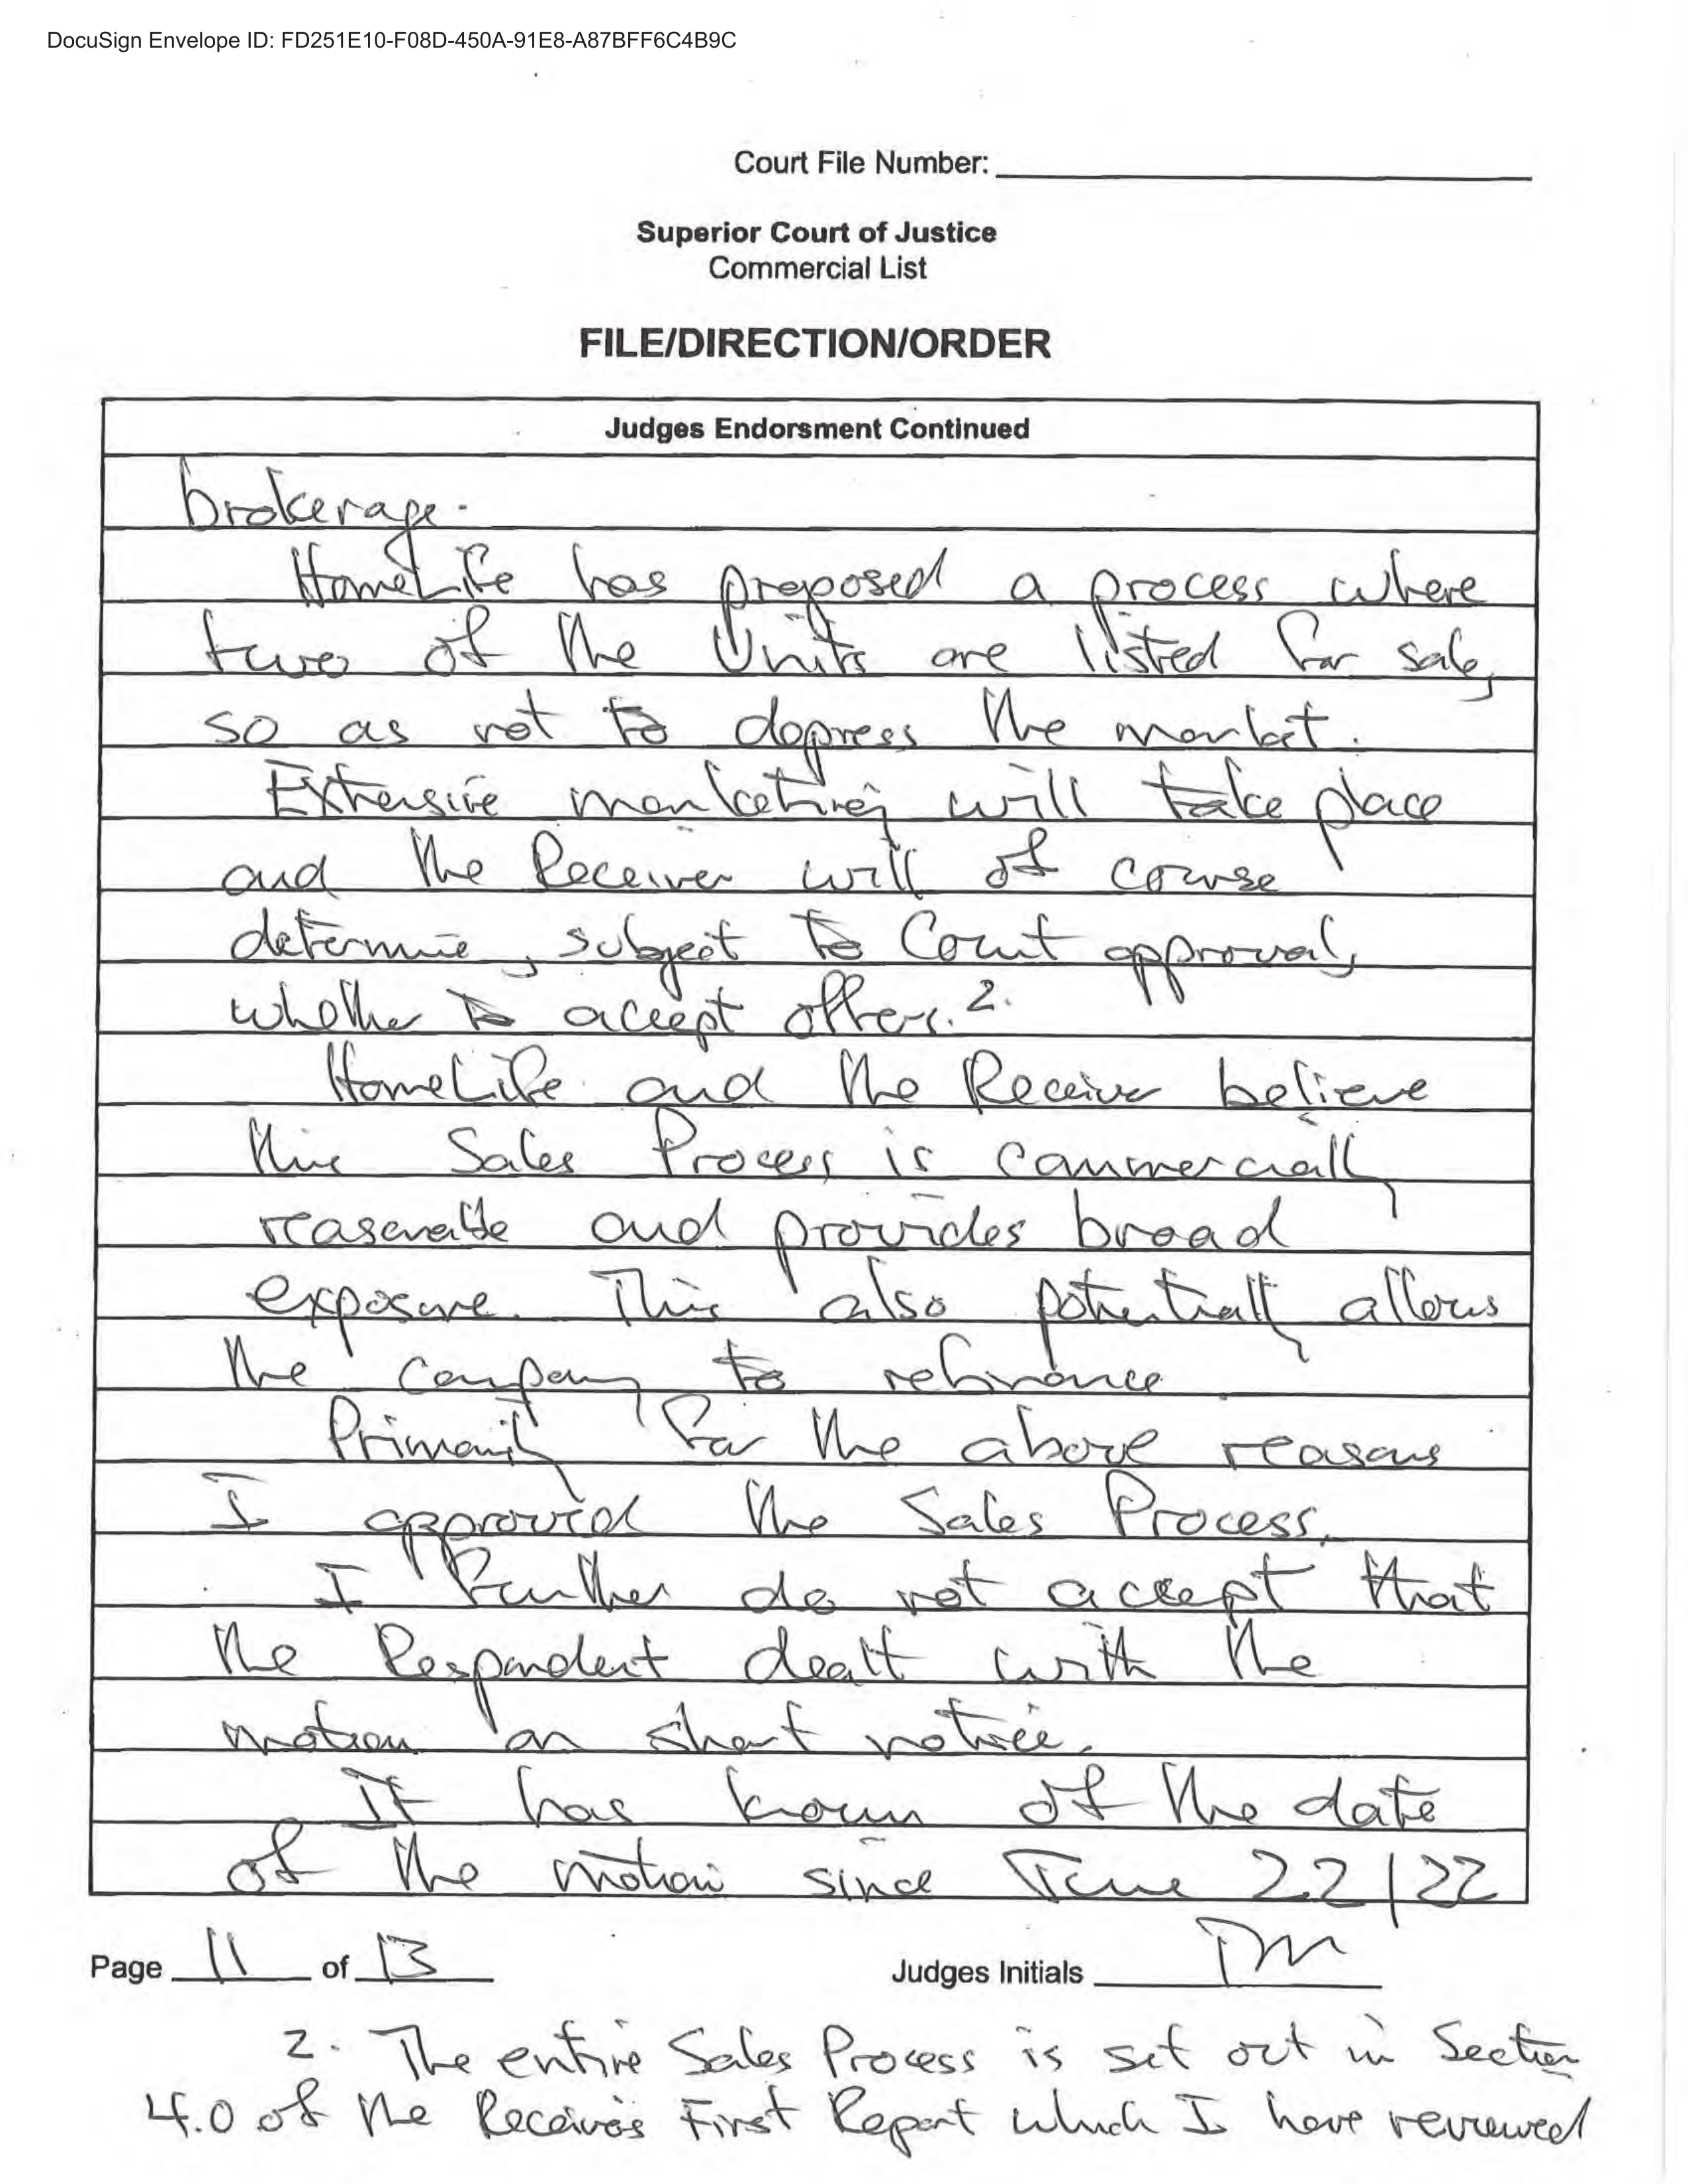 DocuSign Envelope ID: FD251E10-F08D-450A-91E8-A87BFF6C4B9C
Court File Number:
Superior Court of Justice
Commercial List
FILE/DIRECTION/ORDER
Judges Endorsment Continued
brokerage.
HomeLife has proposed a process where
two of the Units are listed for sale,
so as not to depress the market.
Extensive marketing will take place
and the Receiver will of course
determine, subject to Court approval,
whether to accept offers. 2.
HomeLife and the Receiver believe
this Sales Process is commercially
reasonable and provides broad
exposure. This also potentially allows
the company to refinance.
Primarily for the above reasons
I approved the Sales Process.
I further do not accept that
the Respondent dealt with the
motion on short notice.
It has known of the date
of the motion since June 22/22
Page 11 of 13
Judges Initials TM
2. The entire Sales Process is set out in Section
4.0 of the Receiver's First Report which I have reviewed